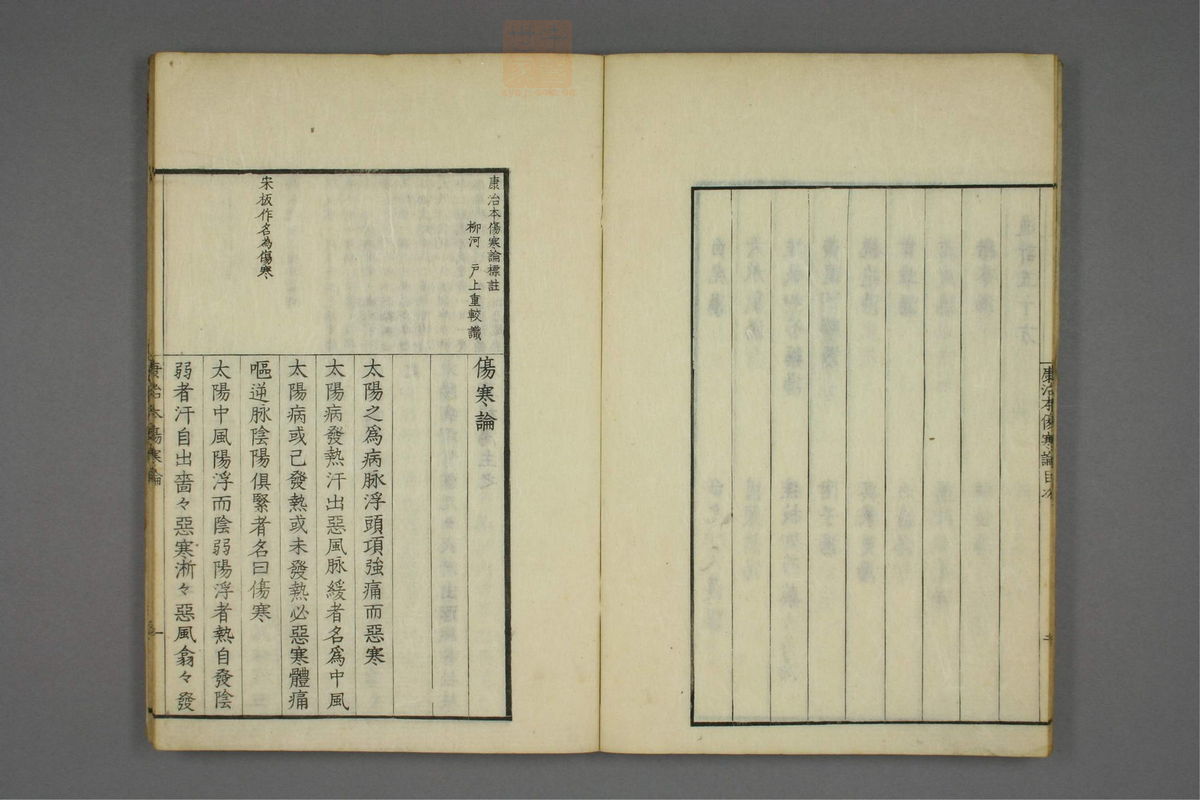 康治本傷寒論目次
康治本傷寒論標註
柳河 戸上重較識
宋板作名為傷寒
傷寒論
太陽之爲病脉浮頭項強痛而惡寒
太陽病發熱汗出惡風脉緩者名爲中風
太陽病或已發熱或未發熱必惡寒體痛
嘔逆脉陰陽俱緊者名曰傷寒
太陽中風陽浮而陰弱陽浮者熱自發陰
弱者汗自出嗇々惡寒淅々惡風翕々發
康治本傷寒論
一